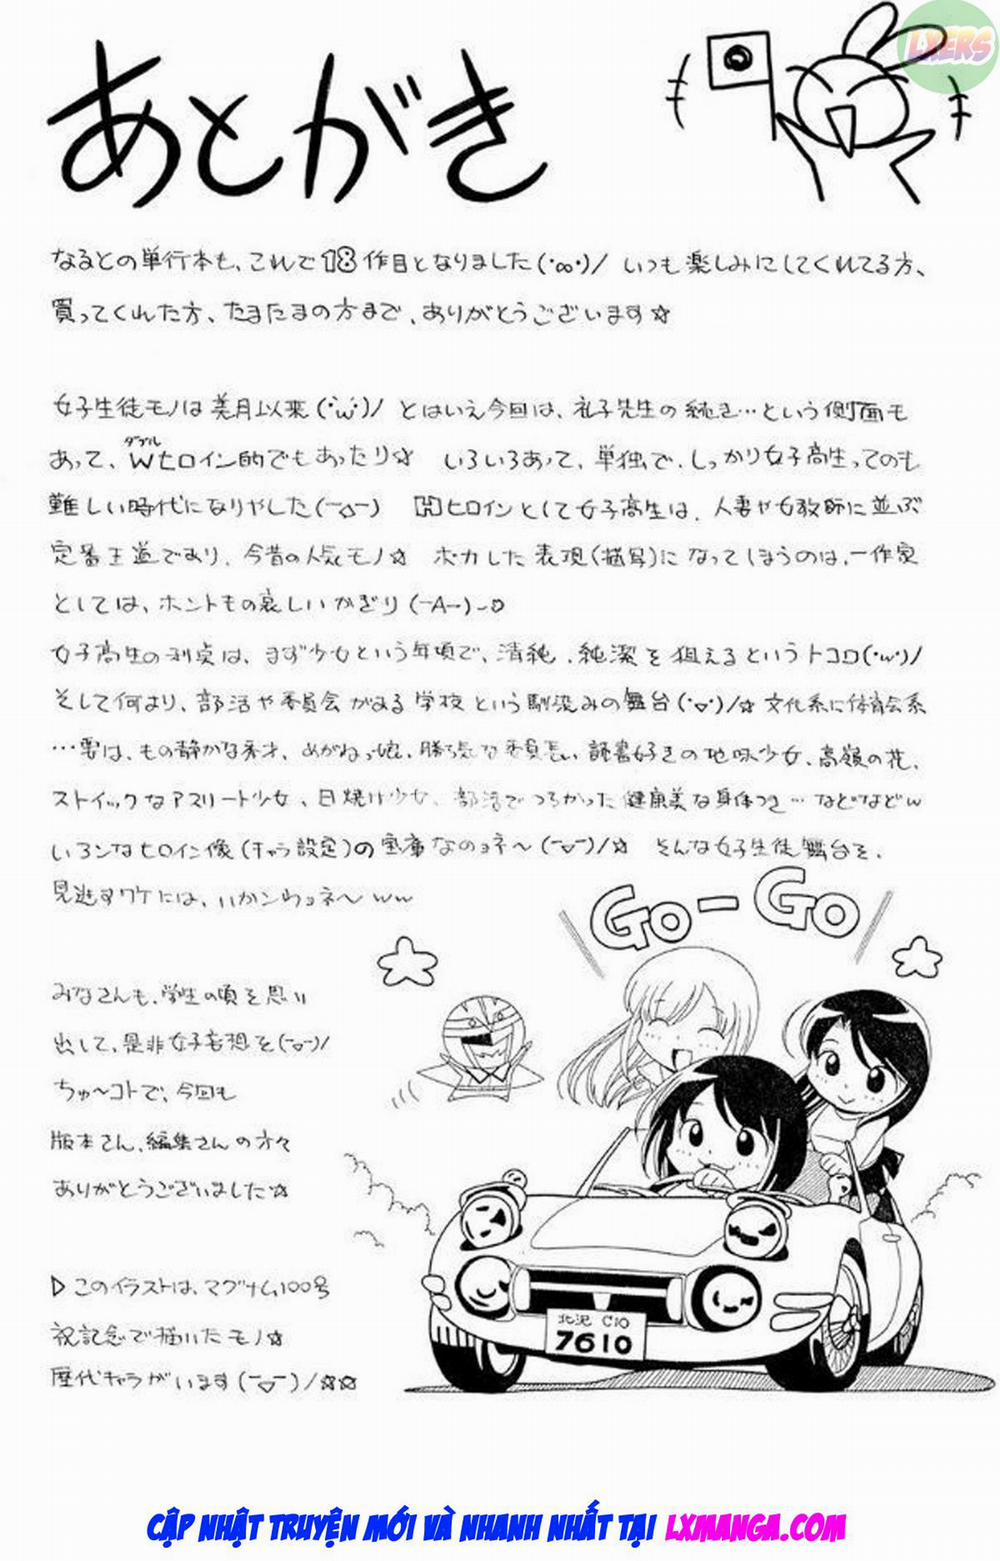 LXERS
あとがき
なるとの単行本も、これで18作目となりました(・∞・)/ いつも楽しみにしてくれてる方、
買ってくれた方、たまたまの方まで、ありがとうございます☆
女子生徒モノは美月以来(・ω・)/ とはいえ今回は、礼子先生の続き…という側面も
あって、Wヒロイン的でもあったり☆ いろいろあって、単独で、しっかり女子高生ってのも
ダブル
難しい時代になりやした(ー△ー) Hヒロインとして女子高生は、人妻や女教師に並ぶ
定番王道であり、今昔の人気モノ☆ ボカした表現(描写)になってしまうのは、一作家
としては、ホントもの哀しいかぎり(ーAー)
女子高生の利点は、まず少女という年頃で、清純、純潔を狙えるというトコロ(・w・)/
そして何より、部活や委員会がある学校という馴染みの舞台(・▽・)/☆ 文化系に体育会系
…要は、もの静かな秀才、めがねっ娘、勝ち気な委員長、読書好きの地味少女、高嶺の花、
ストイックなアスリート少女、日焼け少女、部活でつちかった健康美な身体つき…などなどw
いろンなヒロイン像(キャラ設定)の宝庫なのョネ〜(ー▽ー)/☆ そんな女子生徒舞台を、
見逃すワケには、いかンわョネ〜ww
GO-GO
みなさんも、学生の頃を思い
出して、是非女子妄想を(ー▽ー)/
ちゅ〜コトで、今回も
版本さん、編集さんの方々
ありがとうございました☆
▷このイラストは、マグナム100号
祝記念で描いたモノ☆
歴代キャラがいます(ー▽ー)/☆☆
C10
7610
CẬP NHẬT TRUYỆN MỚI VÀ NHANH NHẤT TẠI LXMANGA.COM